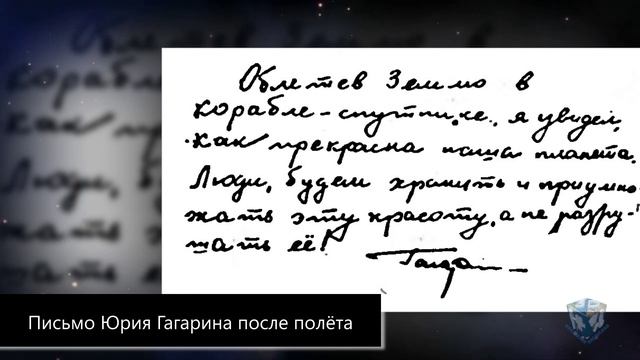 Облетев Землю в
корабле-спутнике, я увидел,
как прекрасна наша планета.
Люди, будем хранить и приумно-
жать эту красоту, а не разру-
шать её!
Гагарин
Письмо Юрия Гагарина после полёта